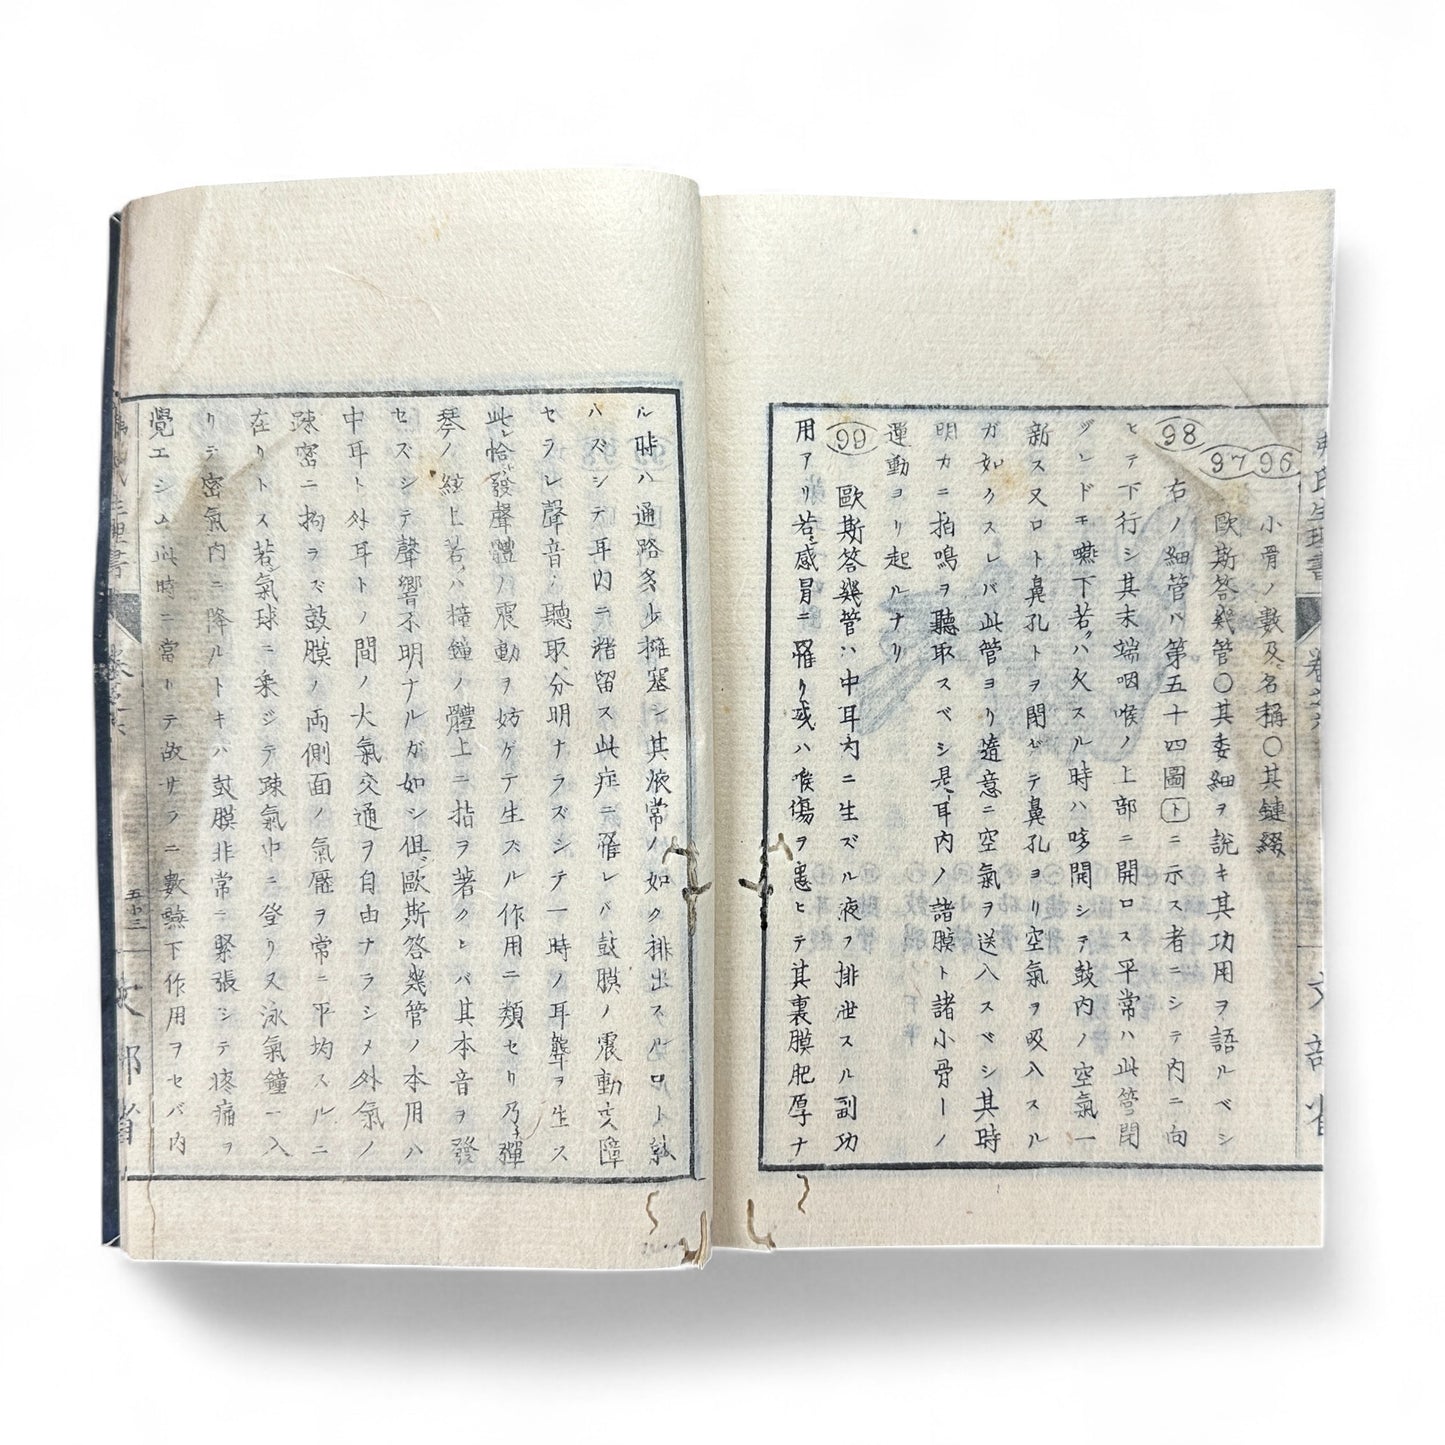 96
小骨ノ數及名稱〇其鏈綴
97
歐斯答幾管〇其委細ヲ說キ其功用ヲ語ルベシ
98
右ノ細管ハ第五十四圖トニ示ス者ニシテ内ニ向
ヒテ下行シ其末端咽喉ノ上部ニ開口ス平常ハ此管閉
ヅレドモ嚥下若クハ欠スル時ハ哆開シテ鼓内ノ空氣一
新ス又口ト鼻孔トヲ閉ヂテ鼻孔ヨリ空氣ヲ吸入スル
ガ如クスレバ此管ヨリ隨意ニ空氣ヲ送入スベシ其時
明カニ拍鳴ヲ聽取スベシ是耳内ノ諸膜ト諸小骨ーノ
運動ヨリ起ルナリ
99
歐斯答幾管ハ中耳内ニ生ズル液ヲ排泄スル副功
用アリ若シ感冒ニ罹リ或ハ喉傷ヲ患ヒテ其裏膜肥厚ナ
ル時ハ通路多少擁塞シ其液常ノ如ク排出スル
ハズシテ耳内ニ瀦留ス此症ニ罹レバ鼓膜ノ震動支障
セラレ聲音ノ聽取分明ナラズシテ一時ノ耳聾ヲ生ス
此レ恰モ發聲體ノ震動ヲ妨ゲテ生ズル作用ニ類セリ乃チ彈
琴ノ絃上若クハ撞鐘ノ體上ニ指ヲ著クレバ其本音ヲ發
セズシテ聲響不明ナルガ如シ但シ歐斯答幾管ノ本用ハ
中耳ト外耳トノ間ノ大氣交通ヲ自由ナラシメ外氣ノ
踈密ニ拘ラズ鼓膜ノ両側面ノ氣壓ヲ常ニ平均スルニ
在リトス若シ氣球ニ乘ジテ踈氣中ニ登リ又泳氣鐘ニ入
リテ密氣内ニ降ルトキハ鼓膜非常ニ緊張シテ疼痛ヲ
覺エシム此時ニ當リテ故サラニ數嚥下作用ヲセバ内
生理書
五十三
文部省